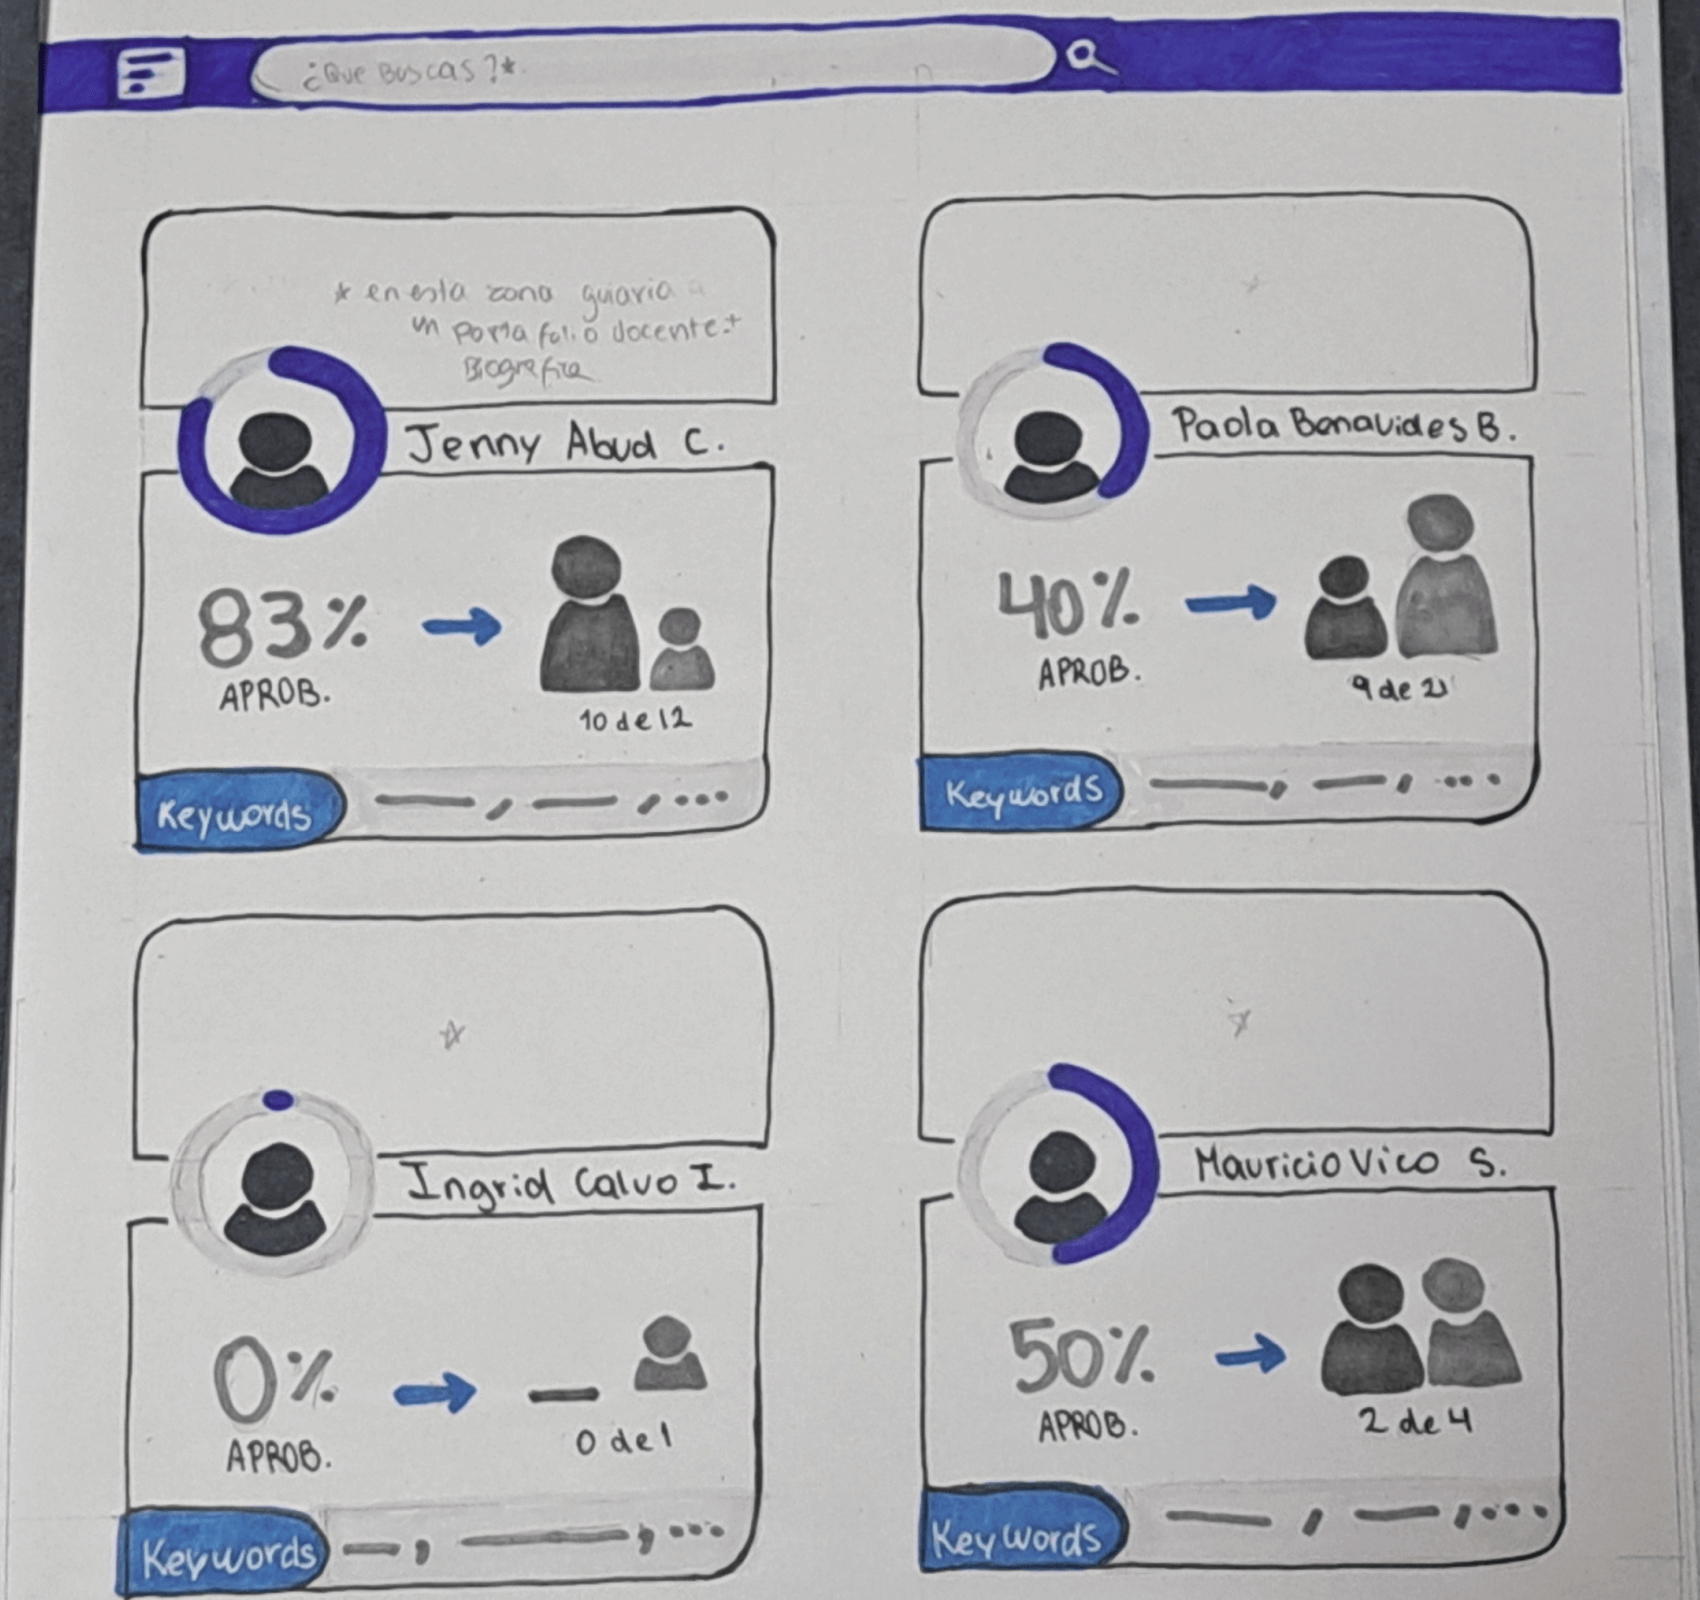 ¿Que Buscas?*
* en esta zona guiaria a
un portafolio docente.+
Biografia
Jenny Abud C.
83%
APROB.
10 de 12
Keywords
Paola Benavides B.
40%
APROB.
9 de 21
Keywords
Ingrid Calvo I.
0%
APROB.
0 de 1
Keywords
Mauricio Vico S.
50%
APROB.
2 de 4
Keywords